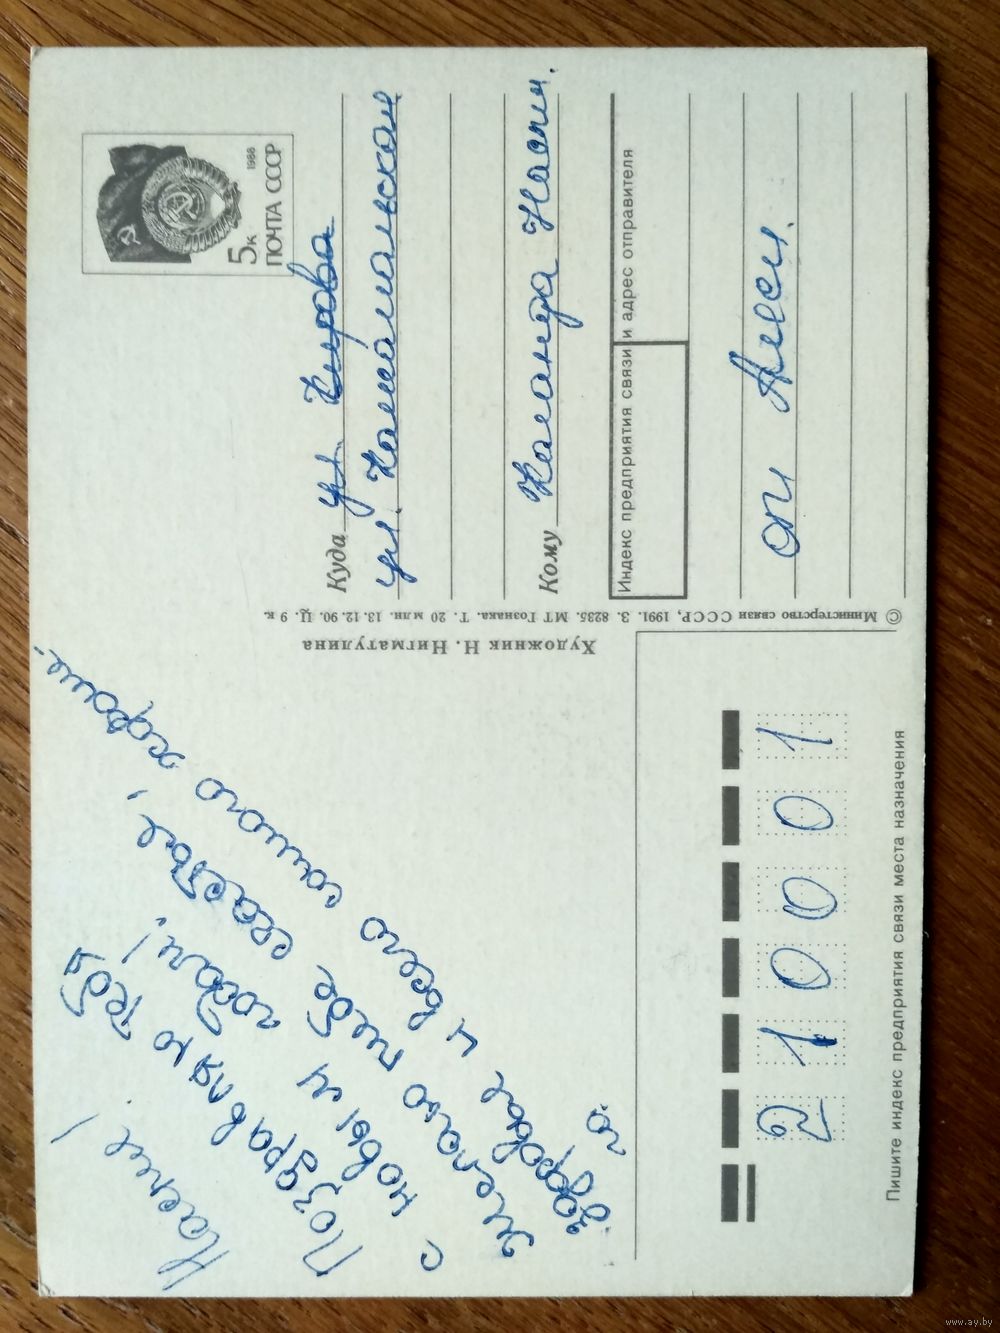 Настя!
Поздравляю тебя
с новым годом!
желаю тебе счастье,
здоровье и всего самого хороше-
го
Художник Н. Нигматулина
© Министерство связи СССР, 1991. З. 8235. МТ Гознака. Т. 20 млн. 13.12.90. Ц. 9 к.
5к
1988
ПОЧТА СССР
Куда ул. Кирова
ул. Комсомольская
Кому Команда Насти.
Индекс предприятия связи и адрес отправителя
от Алеси.
210001
Пишите индекс предприятия связи места назначения
www.ay.by